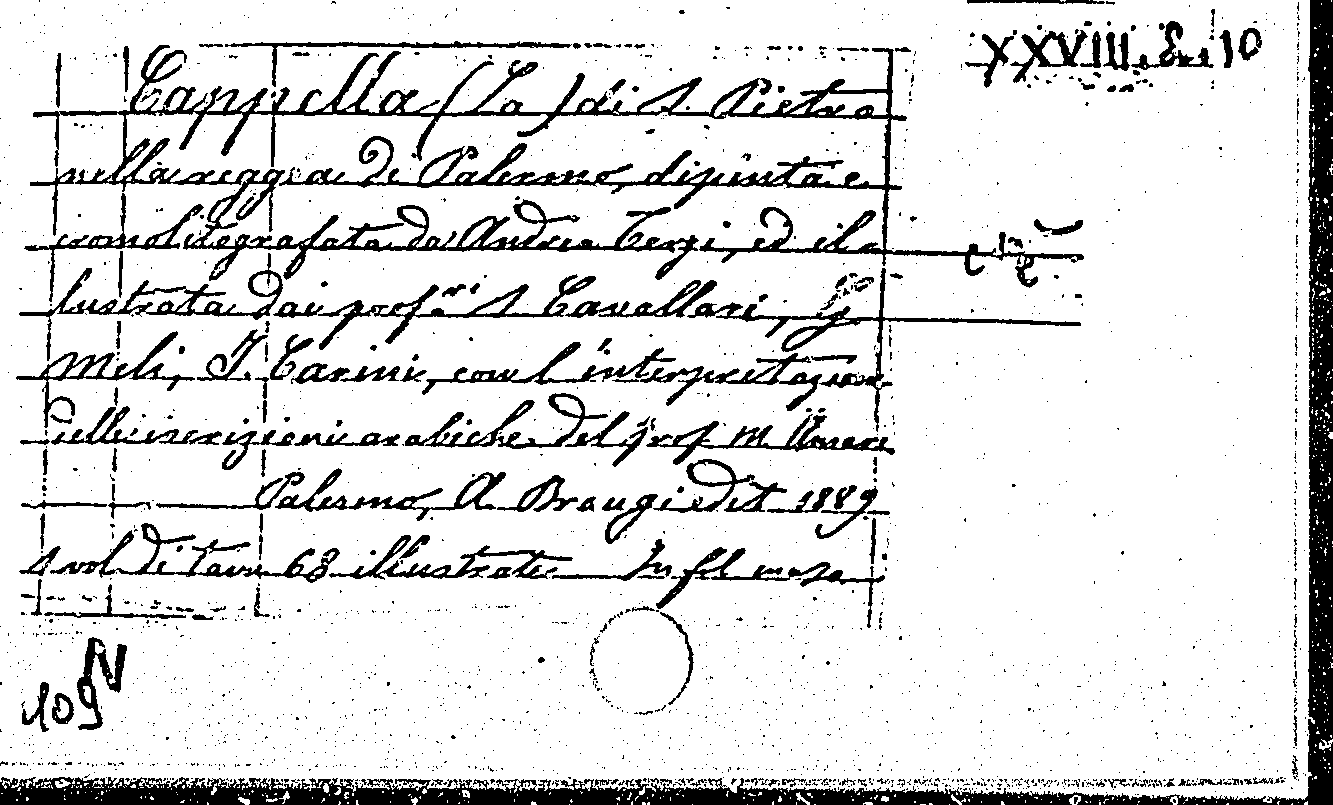 XXVIII. E. 10
Cappella (La) di S. Pietro
nella reggia di Palermo, dipinta e
cromolitografata da Andrea Terzi, ed il-
lustrata dai prof.ri S. Cavallari, G.
Meli, I. Carini, con l'interpretazione
delle iscrizioni arabiche del prof. M. Amari
Palermo, A. Brangi edit. 1889
1 vol. di tav. 68 illustrate In fol. mass.
N
109